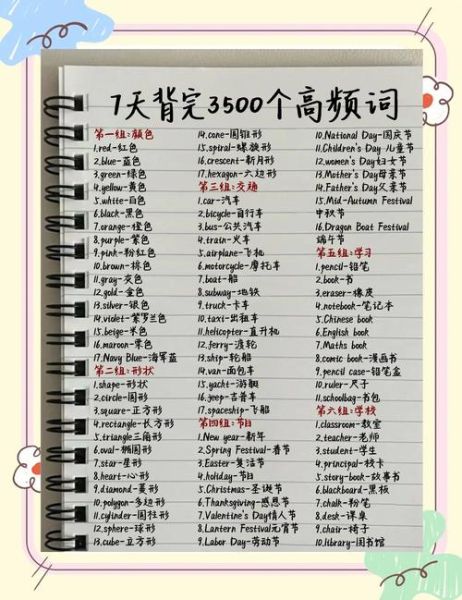 7天背完3500个高频词
第一组:颜色
1.red-红色
2.blue-蓝色
3.green-绿色
4.yellow-黄色
5.white-白色
6.black-黑色
7.orange-橙色
8.purple-紫色
9.pink-粉红色
10.brown-棕色
11.gray-灰色
12.gold-金色
13.silver-银色
14.violet-紫罗兰色
15.beige-米色
16.maroon-栗色
17.Navy Blue-海军蓝
第二组:形状
1.shape-形状
2.circle-圆形
3.square-正方形
4.rectangle-长方形
5.triangle三角形
6.oval-椭圆形
7.star-星形
8.heart-心形
9.diamond-菱形
10.polygon-多边形
11.cylinder-圆柱形
12.sphere-球形
13.cube-立方形
14.cone-圆锥形
15.spiral-螺旋形
16.crescent-新月形
17.hexagon-六边形
第三组:交通
1.car-汽车
2.bicycle-自行车
3.bus-公共汽车
4.train-火车
5.airplane-飞机
6.motorcycle-摩托车
7.boat-船
8.subway-地铁
9.truck-卡车
10.taxi-出租车
11.helicopter-直升机
12.ferry-渡轮
13.ship-轮船
14.van-面包车
15.yacht-游艇
16.jeep-吉普车
17.spaceship-飞船
第四组:节日
1.New year-新年
2.Spring Festival-春节
3.Easter-复活节
4.holiday-节日
5.Christmas-圣诞节
6.Thanksgiving-感恩节
7.Valentine's Day情人节
8.Lantern Festival元宵节
9.Labor Day-劳动节
10.National Day-国庆节
11.Children's Day-儿童节
12.women's Day妇女节
13.Mother's Day母亲节
14.Father's Day父亲节
15.Mid-Autumn Festival
中秋节
16.Dragon Boat Festival
端午节
第五组:学习
1.pencil-铅笔
2.book-书
3.eraser-橡皮
4.notebook-笔记本
5.Chinese book
6.English book
7.Maths book
8.comic book-漫画书
9.pencil case-铅笔盒
10.ruler-尺子
11.schoolbag-书包
第六组:学校
1.classroom-教室
2.teacher-老师
3.student-学生
4.principal-校卡
5.story-book-故事书
6.blackboard-黑板
7.chalk-粉笔
8.desk-课桌
9.chair-椅子
10.library-图书馆